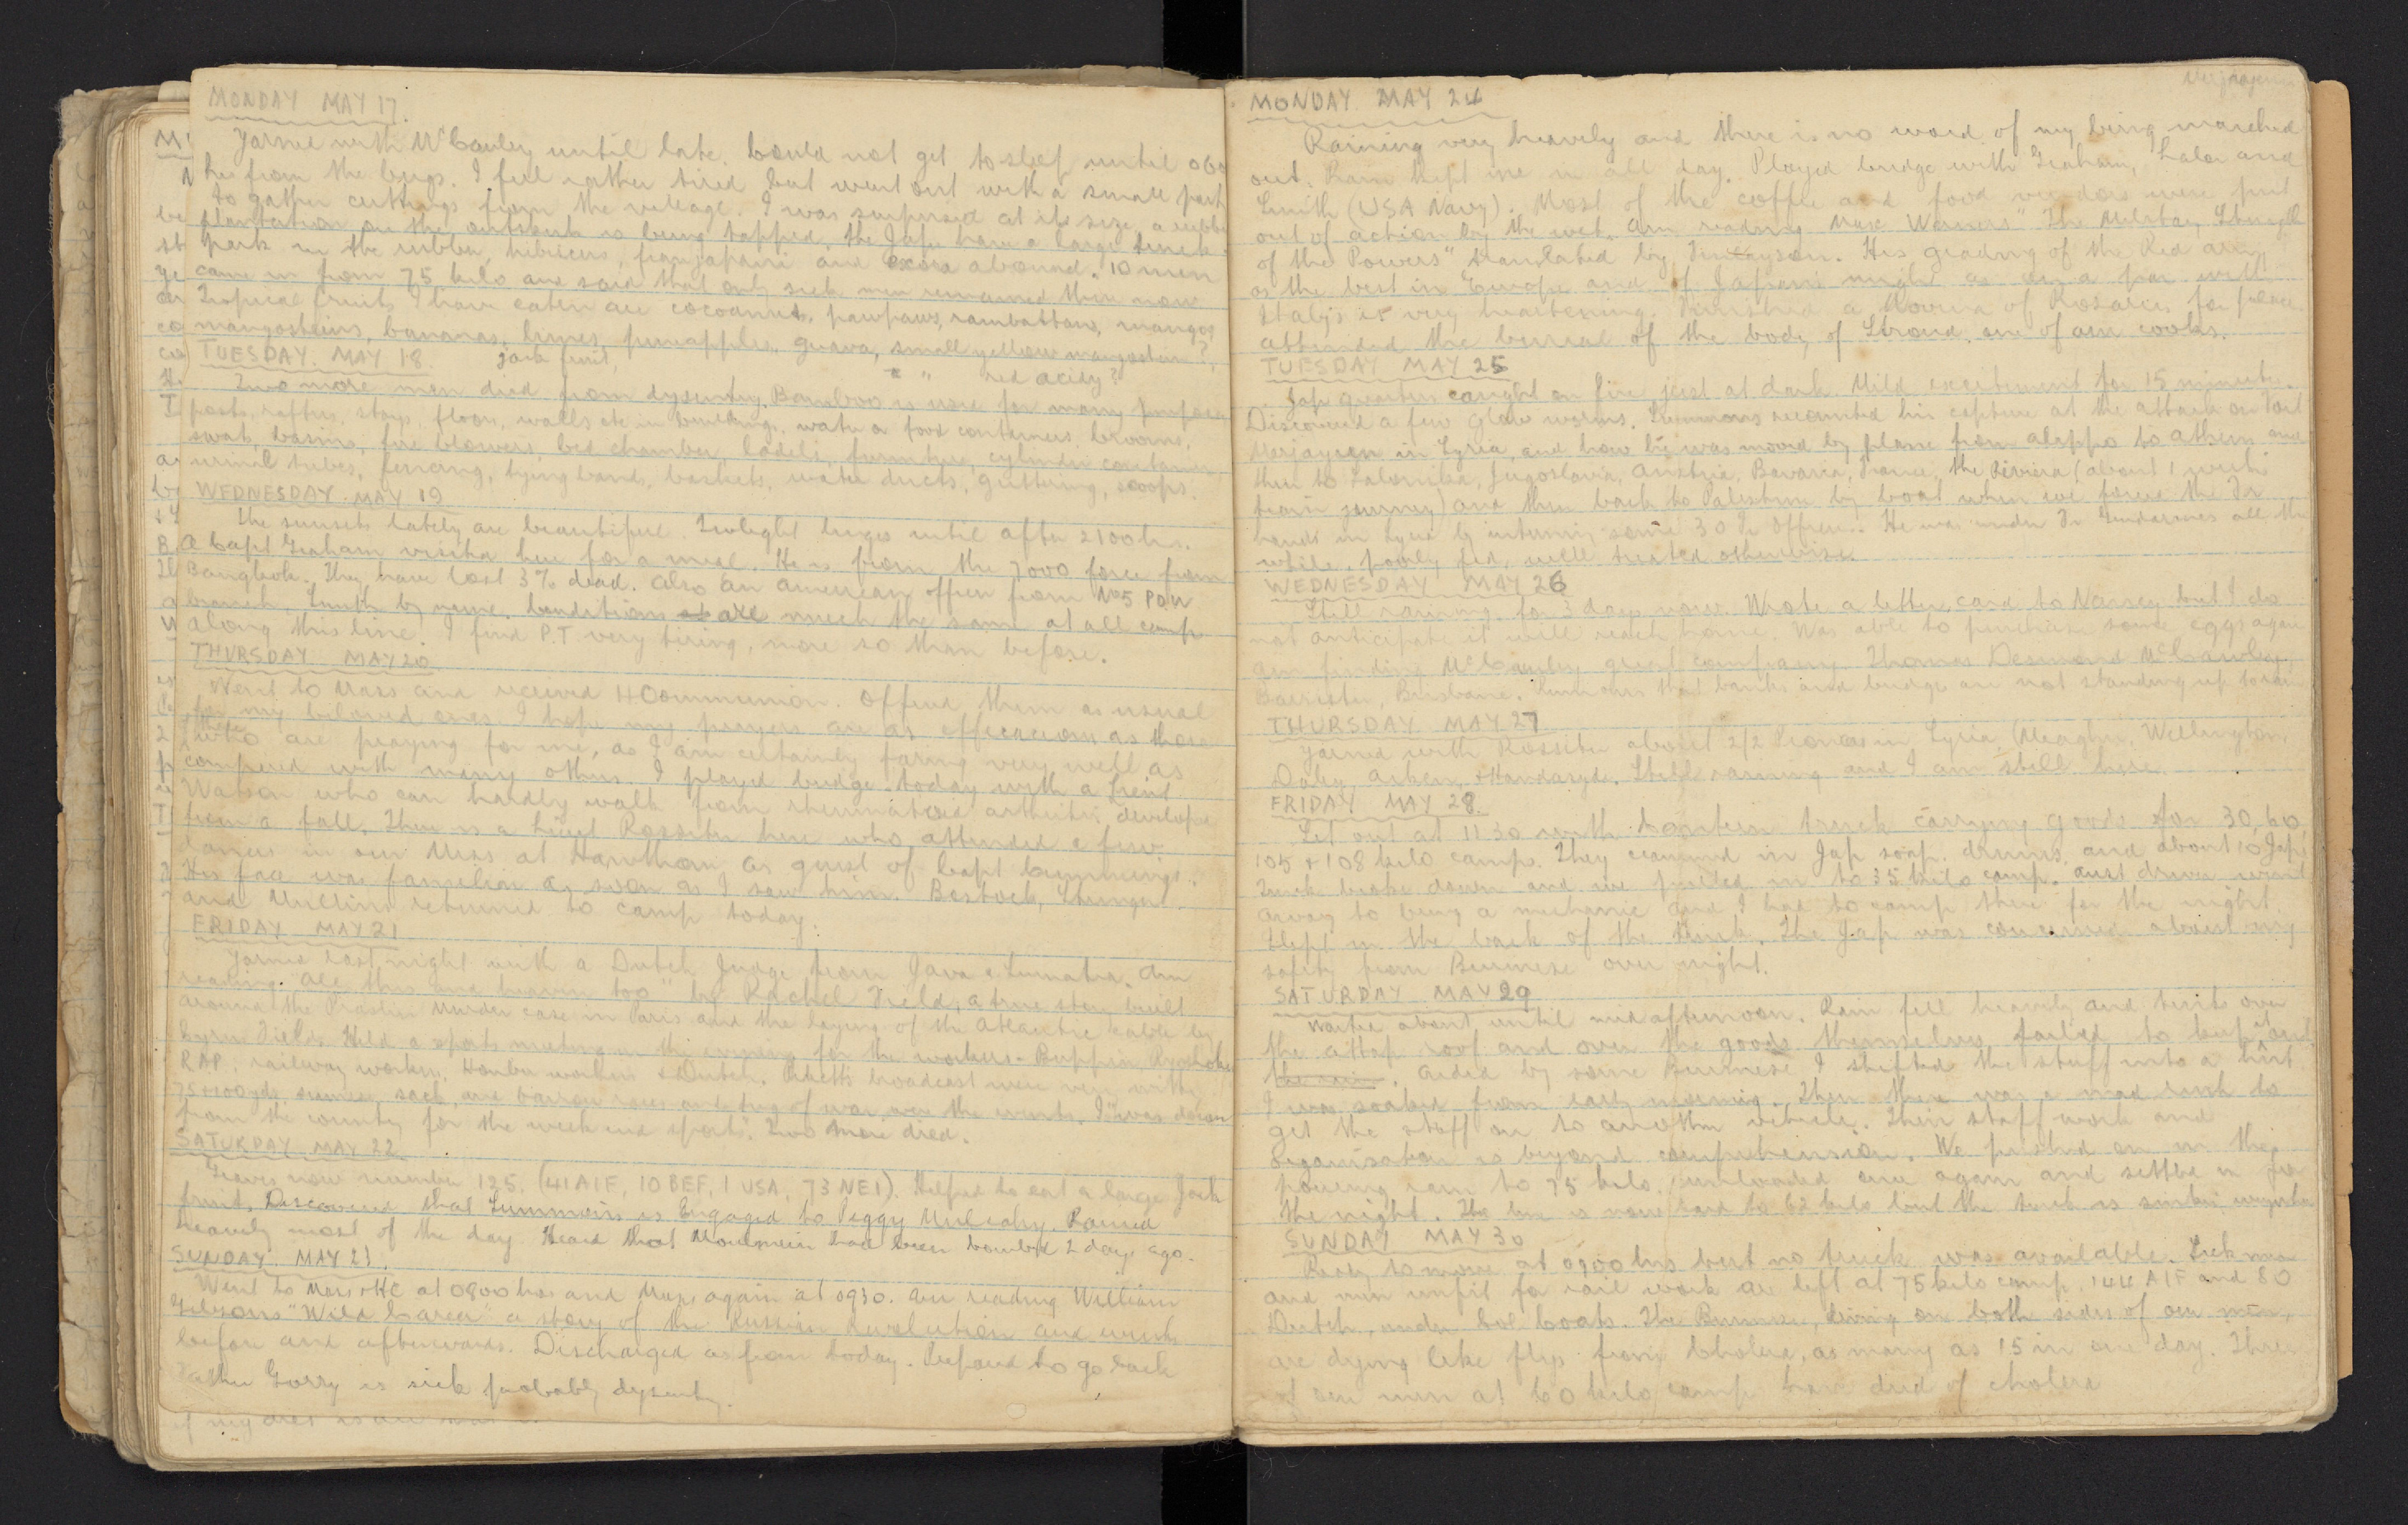 MONDAY MAY 17.
Yarned with McCauley until late. Could not get to sleep until 0600
hrs from the bugs. I feel rather tired but went out with a small part
to gather cuttings from the village. I was surprised at its size, a rubber
plantation on the outskirts is being tapped, the Japs have a large truck
park in the rubber, hibiscus, frangapanni and abound. 10 men
came in from 75 kilo and said that only sick men remained there now
Tropical fruits I have eaten are cocoanuts, pawpaws, rambuttans, mangos
mangosteins, bananas, limes, pineapples, guava, small yellow mangostein?,
Jack fruit, " " red acidy?
TUESDAY. MAY 18.
Two more men died from dysentry. Bamboo is use for many purposes
posts, rafters, stays, floors, walls etc in buildings, water or food containers, brooms,
swab, basins, fire blowers, bed chamber, ladels, furniture, cylinder containers,
urinal tubes, fencing, tying bands, baskets, water ducts, guttering, scoops.
WEDNESDAY. MAY 19
The sunsets lately are beautiful. Twilight linges until after 2100 hrs.
A Capt Graham visited here for a meal. He is from the 7000 force from
Bangkok. They have lost 3% dead. Also an American officer from No5 POW
branch, Smith by name. Conditions are much the same at all camps
along this line. I find P.T very tiring, more so than before.
THURSDAY MAY 20
Went to Mass and received H Communion. Offered them as usual
for my beloved ones. I hope my prayers are as effecacious as those
who there are praying for me, as I am certainly faring very well as
compared with many others. I played bridge today with a Lieut
Watson who can hardly walk from rheumatoid arthritis, developed
from a fall. There is a Lieut Rossiter here who attended a few
dances in our Mess at Hawthorn as guest of Capt Cummings.
His face was familiar as soon as I saw him. Bostock,
and Mullins returned to camp today.
FRIDAY MAY 21
Yarned last night with a Dutch Judge from Java & Sumatra. Am
reading "All this and heaven too" by Rachel Field, a true story built
around the Praslin Murder case in Paris and the laying of the Atlantic cable by
Cyrus Field. Held a sports meeting in the evening for the workers -
RAP, railway workers, workers & Dutch. broadcast were very witty
75 & 100yds, siamese, sack, and barrow races and tug of war were the events. I "was down
from the country for the week end sports". Two more died.
SATURDAY MAY 22
Graves now number 125. (41 AIF, 10 BEF, 1 USA, 73 NEI). Helped to eat a large Jack
fruit. Discovered that Summons is Engaged to Peggy Mulcahy. Rained
heavily most of the day. Heard that Moulmein had been bombed 2 days ago.
SUNDAY. MAY 23.
Went to Mass & HC at 0800 hrs and Mass again at 0930. Am reading William
Gibsons "Wild Career" a story of the Russian revolution and events
before and afterwards. Discharged as from today. Prepared to go back
Father Gorry is sick probably dysentry.
MONDAY MAY 24
Raining very heavily and there is no word of my being marched
out. Rain kept me in all day. Played bridge with Graham, Lalor and
Smith (USA Navy). Most of the coffee and food vendors were put
out of action by the wet. Am reading Max Werners "The Military Strength
of the Powers" translated by. His grading of the Red army
as the best in Europe and of Japans might as on a par with
Italy's is very heartening. Finished a Novena of Rosaries for peace.
Attended the burial of the body of Stroud, one of our cooks.
TUESDAY MAY 25
Jap quarters caught on fire just at dark. Mild excitement for 15 minutes.
Discovered a few glow worms. Summons recounted his capture at the attack on Fort
Merjayoun in Syria, and how he was moved by plane from Aleppo to Athens and
then to Salonika, Jugoslavia, Austria, Bavaria, France, the Riviera (about 1 weeks
train journey) and then back to Palestine by boat when we forced the Fr
hands in Syria by interning some 30 Fr Officers. He was under Fr Gendarmes all the
while, poorly fed, well treated otherwise.
WEDNESDAY MAY 26
Still raining, for 3 days now. Wrote a letter card to Nancy but I do
not anticipate it will reach home. Was able to purchase some eggs again
Am finding McCauley great company. Thomas Desmond McCawley,
barrister, Brisbane. Rumours that banks and bridges are not standing up to rain
THURSDAY MAY 27
Yarned with Rossiter about 2/2 Pioneers in Syria, Meagher, Wellington,
Daley, Aitken, & Handasyde. Still raining and I am still here.
FRIDAY MAY 28.
Set out at 1130 with canteen truck carrying goods for 30, 60,
105 & 108 kilo camps. They crammed in Jap soap, drums, and about 10 Japs
Truck broke down and we pulled in to 35 kilo camp. Aust driver went
away to bring a mechanic and I had to camp there for the night
Slept in the back of the truck. The Jap was concerned about my
safety from Burmese over night.
SATURDAY MAY 29
Waited about until mid afternoon. Rain fell heavily and tents over
the attap roof and over the goods themselves failed to keep it out
the rain. Aided by some Burmese I shifted the stuff into a hut
I was soaked from early morning. Then there was a mad rush to
get the stuff on to another vehicle. Their staff work and
Organisation is beyond comprehension. We pushed on in the
pouring rain to 75 kilo, unloaded once again and settled in for
the night. The line is now laid to 62 kilo but the track is
SUNDAY MAY 30
Ready to move at 0900 hrs but no truck was available. Sick men
and men unfit for rail work are left at 75 kilo camp, 144 AIF and 80
Dutch, under Col Coats. The Burmese, living on both sides of our men,
are dying like flys from Cholera, as many as 15 in one day. Three
of our men at 60 kilo camp have died of cholera